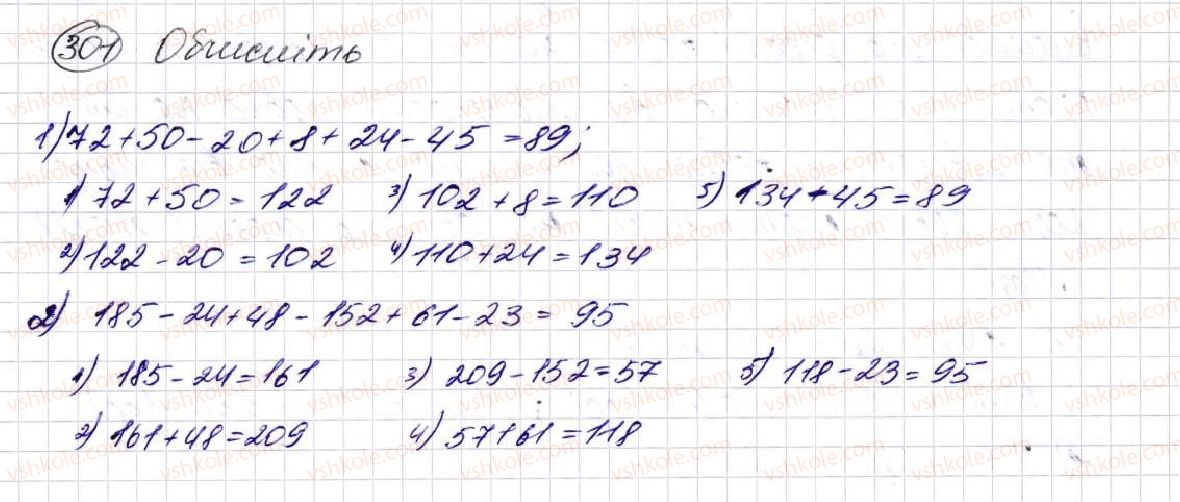 301 Обчисліть
1) 72 + 50 - 20 + 8 + 24 - 45 = 89;
1) 72 + 50 = 122 3) 102 + 8 = 110 5) 134 + 45 = 89
2) 122 - 20 = 102 4) 110 + 24 = 134
2) 185 - 24 + 48 - 152 + 61 - 23 = 95
1) 185 - 24 = 161 3) 209 - 152 = 57 5) 118 - 23 = 95
2) 161 + 48 = 209 4) 57 + 61 = 118